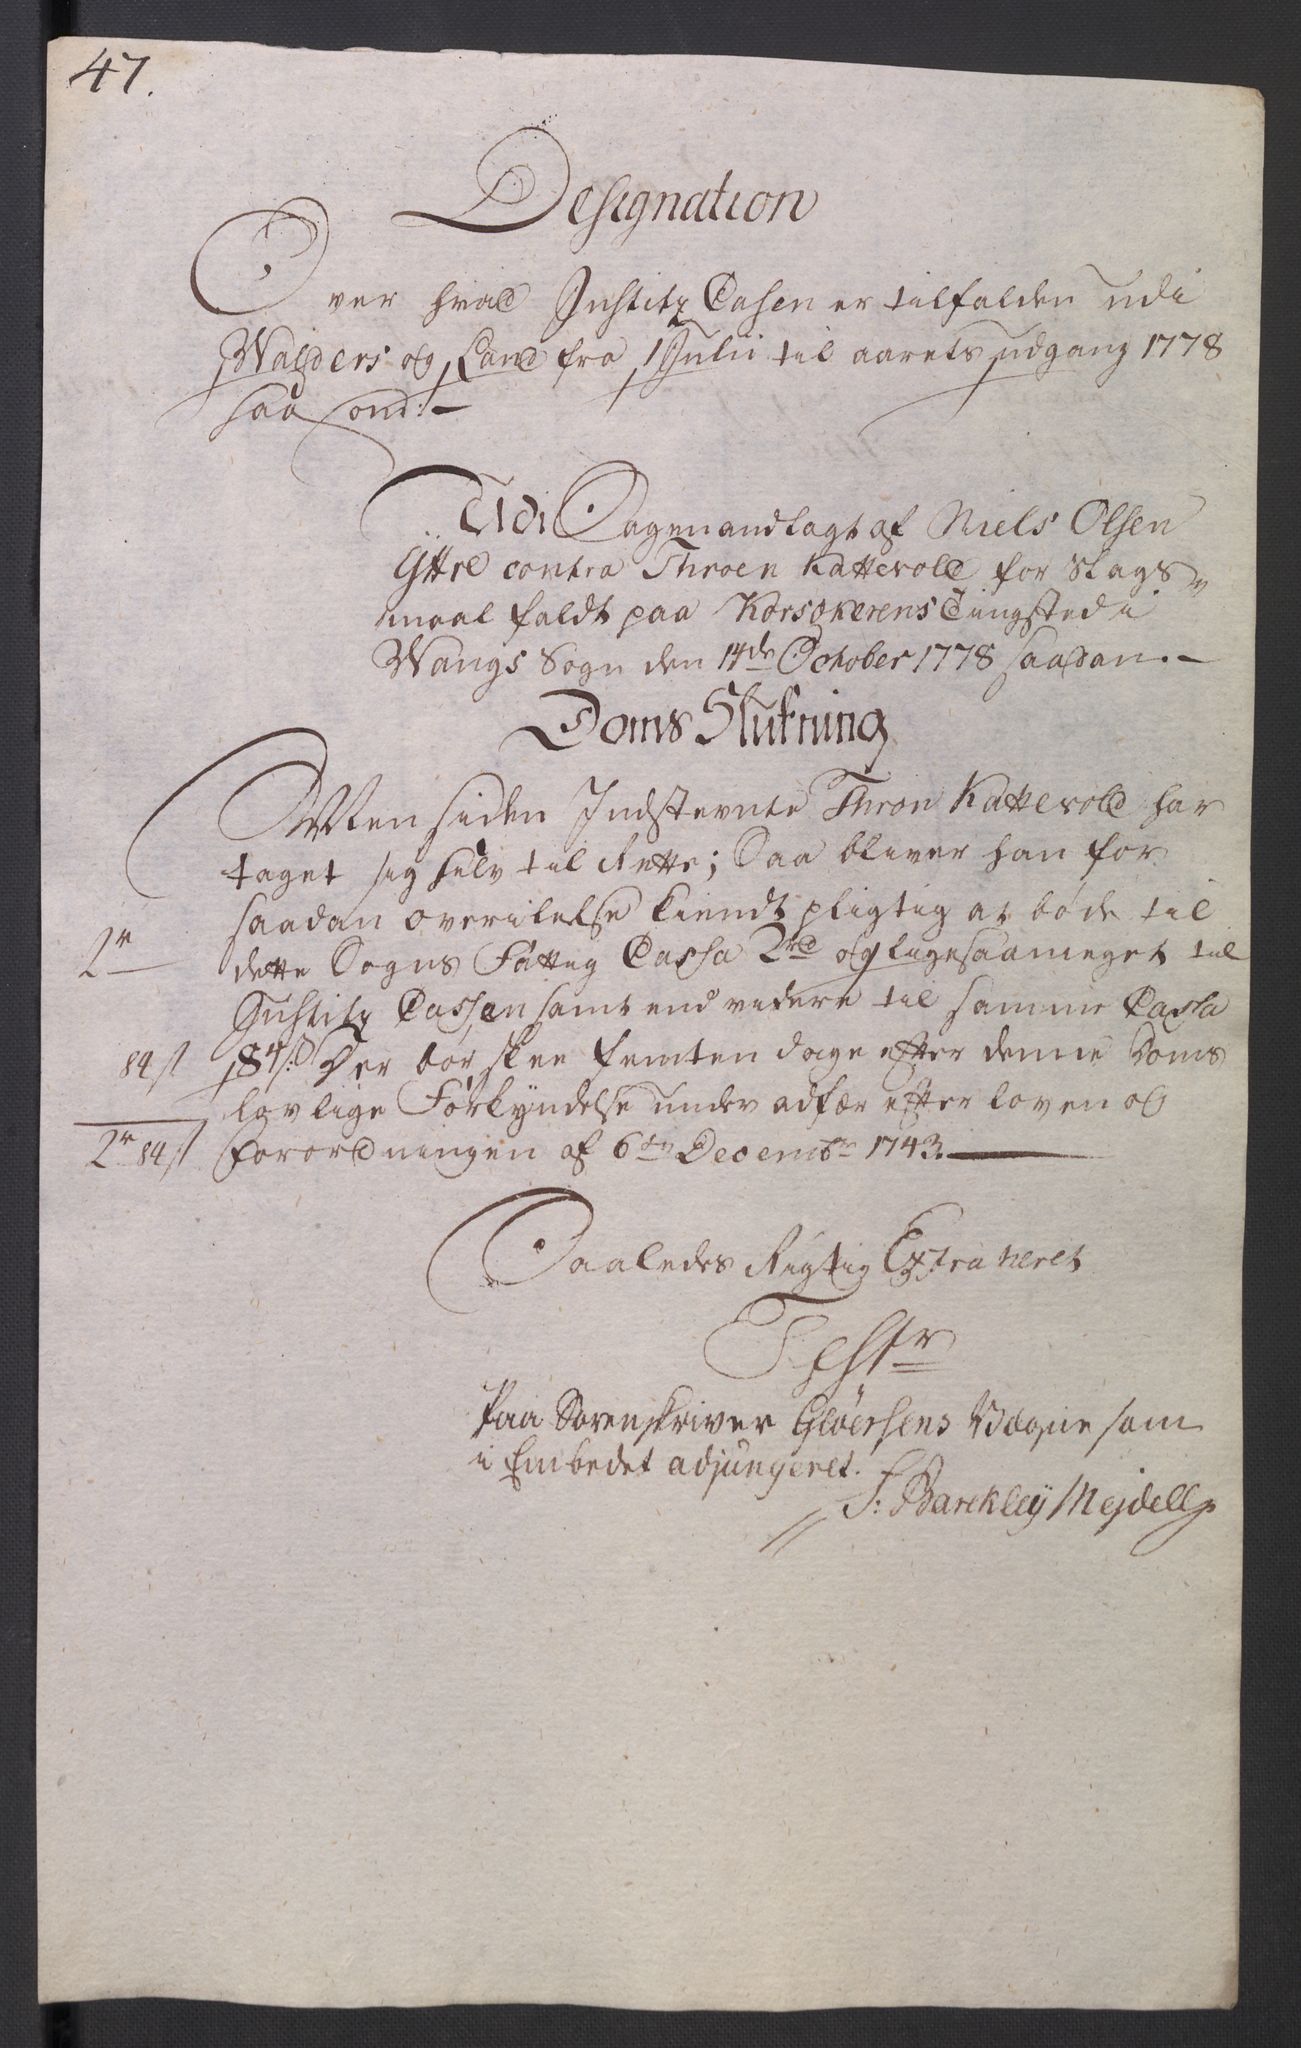 47.
Designation
Over hvad Justitz Casen er tilfalden udi
Walders og Land fra 1 Julii til aarets udgang 1778
saasom:
Udi Sagen andlagt af Niels Olsen
Yttre contra Throen Kattevold for Slags
maal faldt paa Korsokerens Tingsted i
Wangs Sogn den 14de October 1778 saadan.
Doms Slutning
Men siden Indstevnte Thron Kattevold har
taget sig selv til Rette; Saa bliver han for
saadan overilelse kiendt pligtig at bøde til
2r dette Sogns Fattig Cassa 2rd og ligesaameget til
Justitz Cassen samt end videre til samme Cassa
84s 84s. Der bør skee femten dage efter denne Doms
lovlige Forkyndelse under adfær efter loven og
2r 84s Forordningen af 6te Decembr 1743.
Saaledes Rigtig Extraheret
Testr
Paa Sorenskriver Gløersens Vegne som
i Embedet adjungeret.
J: Barckley Mejdell